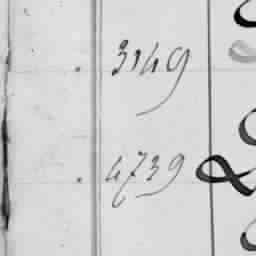 3149
4739